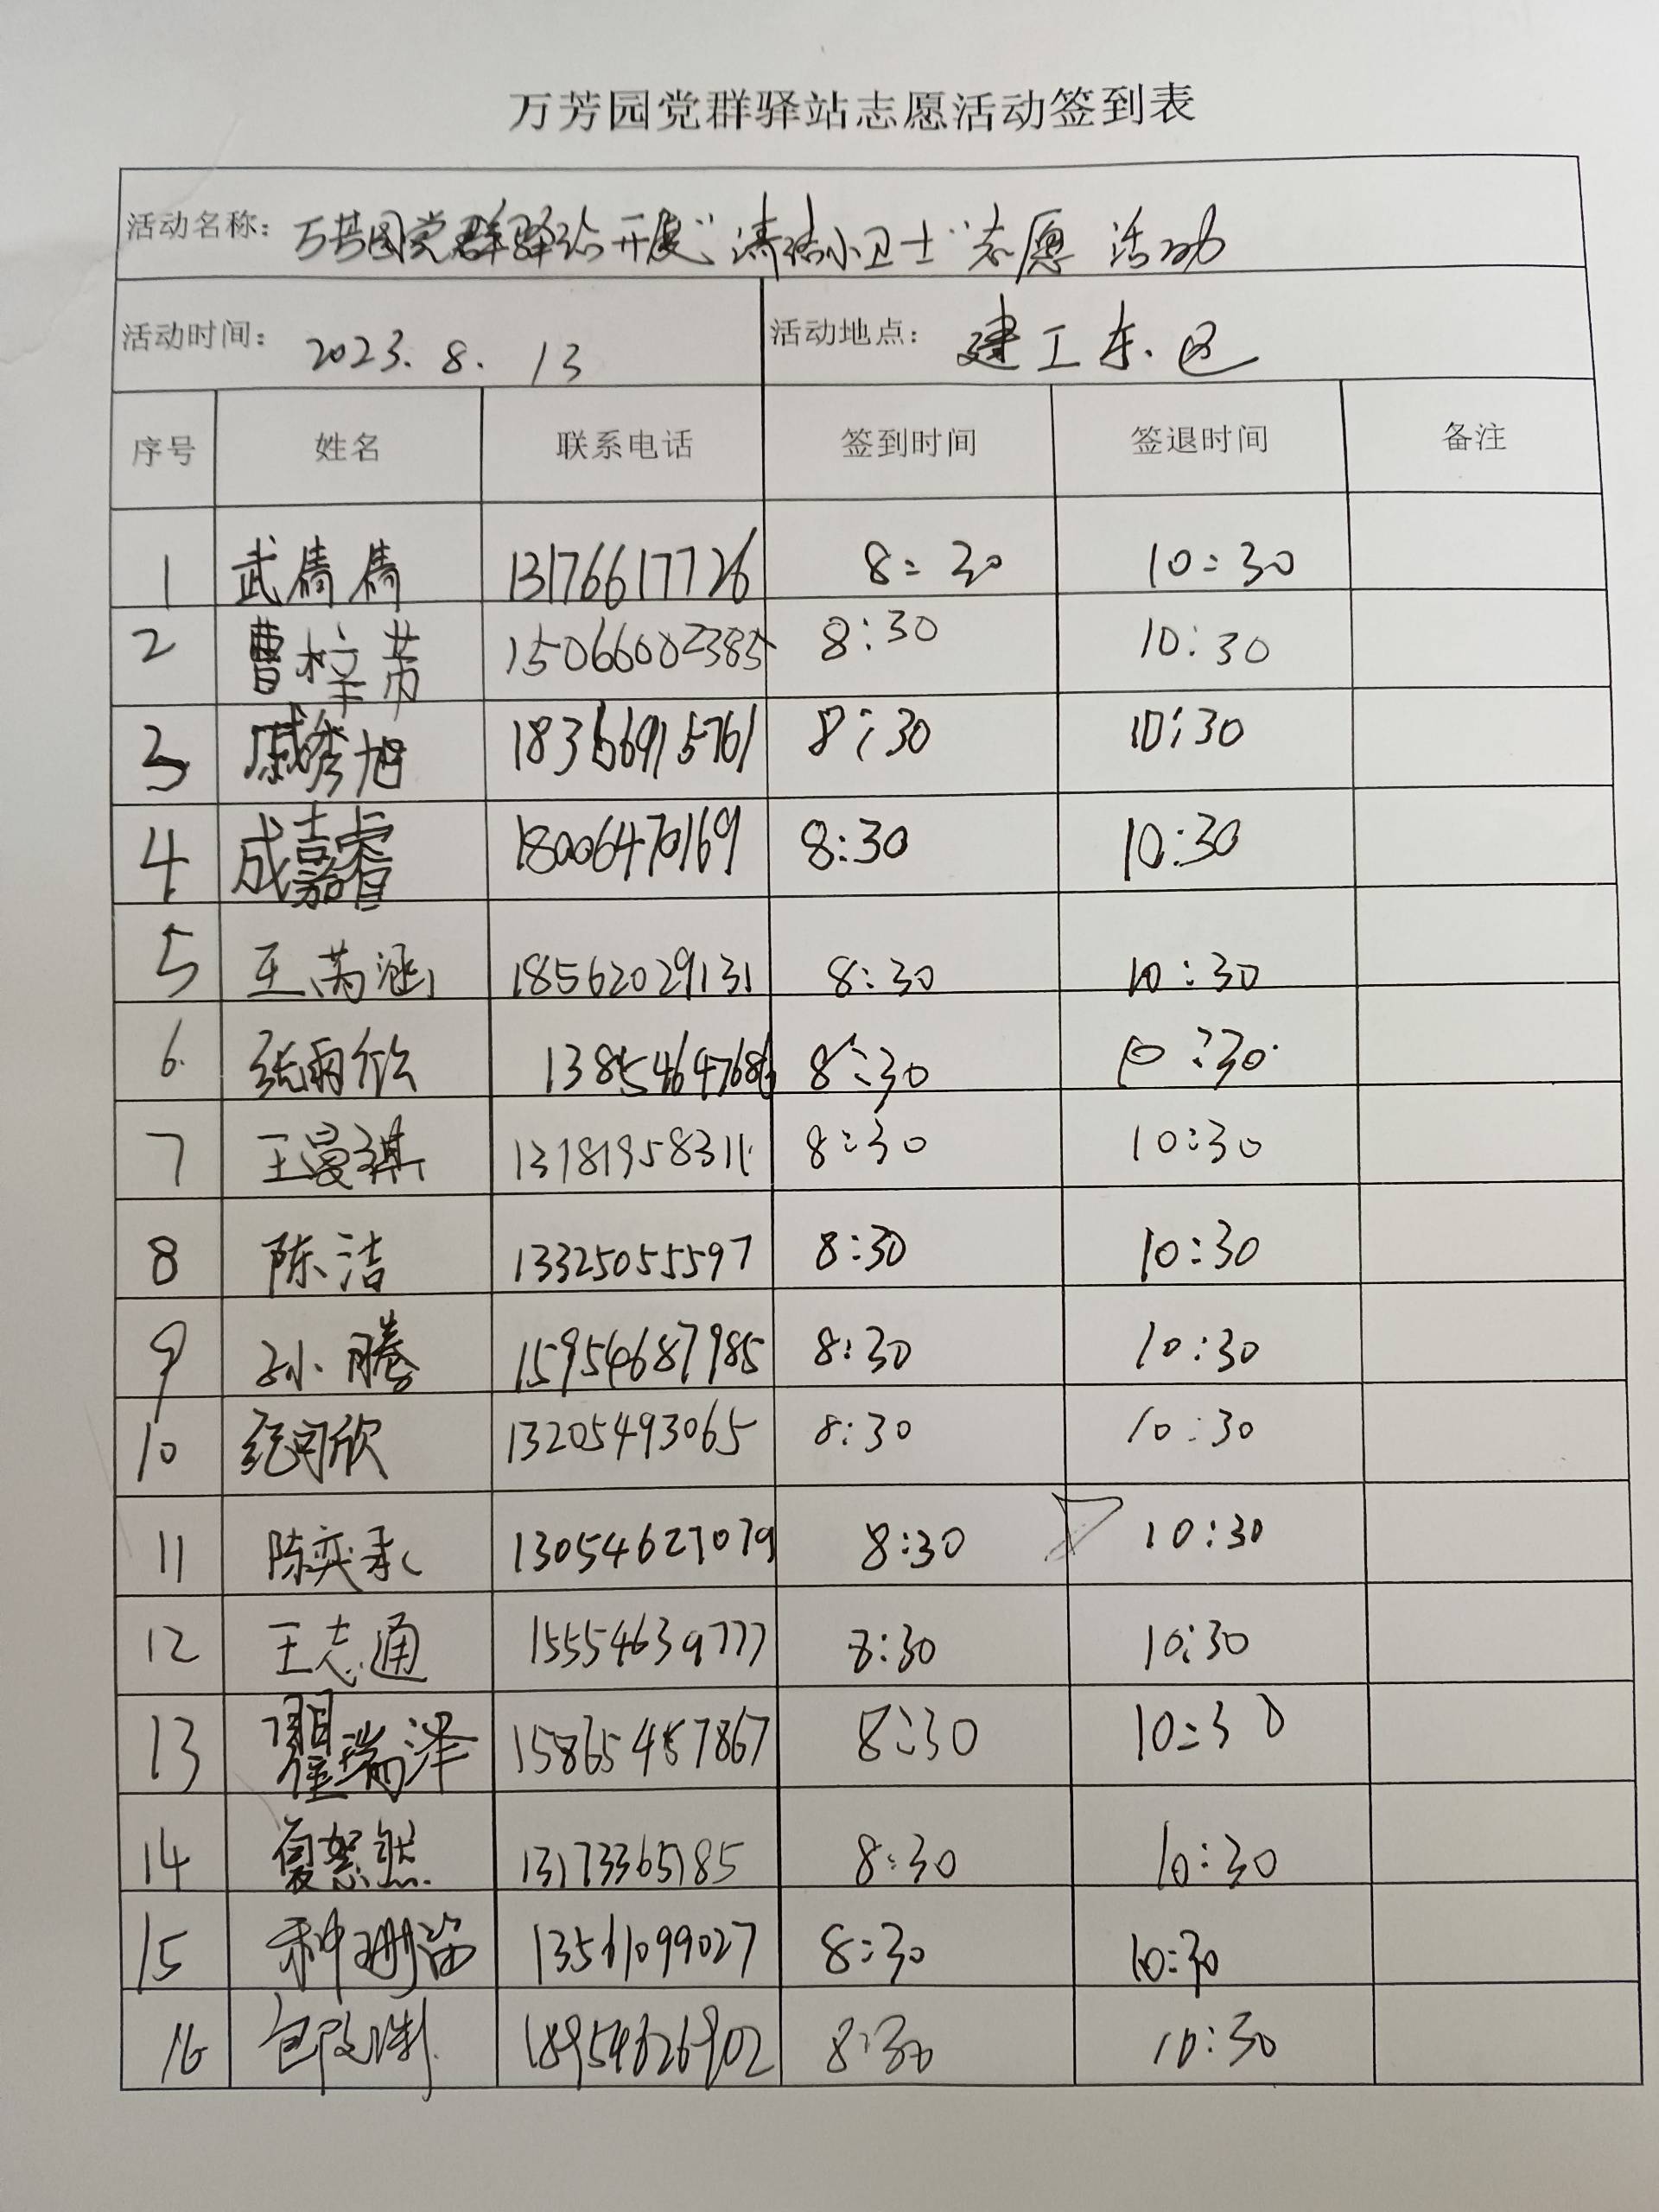 万芳园党群驿站志愿活动签到表
活动名称: 万芳园党群驿站开展"清洁小卫士"志愿活动
活动时间: 2023.8.13 活动地点: 建工东区
序号 姓名 联系电话 签到时间 签退时间 备注
1 武倩倩 13176617726 8:30 10:30
2 曹梓芮 15066002385 8:30 10:30
3 戚秀旭 18366915761 8:30 10:30
4 成嘉睿 18006470169 8:30 10:30
5 王芮涵 18562029131 8:30 10:30
6. 张雨欣 13854647686 8:30 10:30
7 王曼祺 13181958311 8:30 10:30
8 陈洁 13325055597 8:30 10:30
9 孙腾 15954687985 8:30 10:30
10 纪可欣 13205493065 8:30 10:30
11 陈奕承 13054627079 8:30 10:30
12 王志通 15554639777 8:30 10:30
13 翟瑞泽 15865457867 8:30 10:30
14 夏绍然 13173365185 8:30 10:30
15 种珊笛 13561099027 8:30 10:30
16 18954626902 8:30 10:30